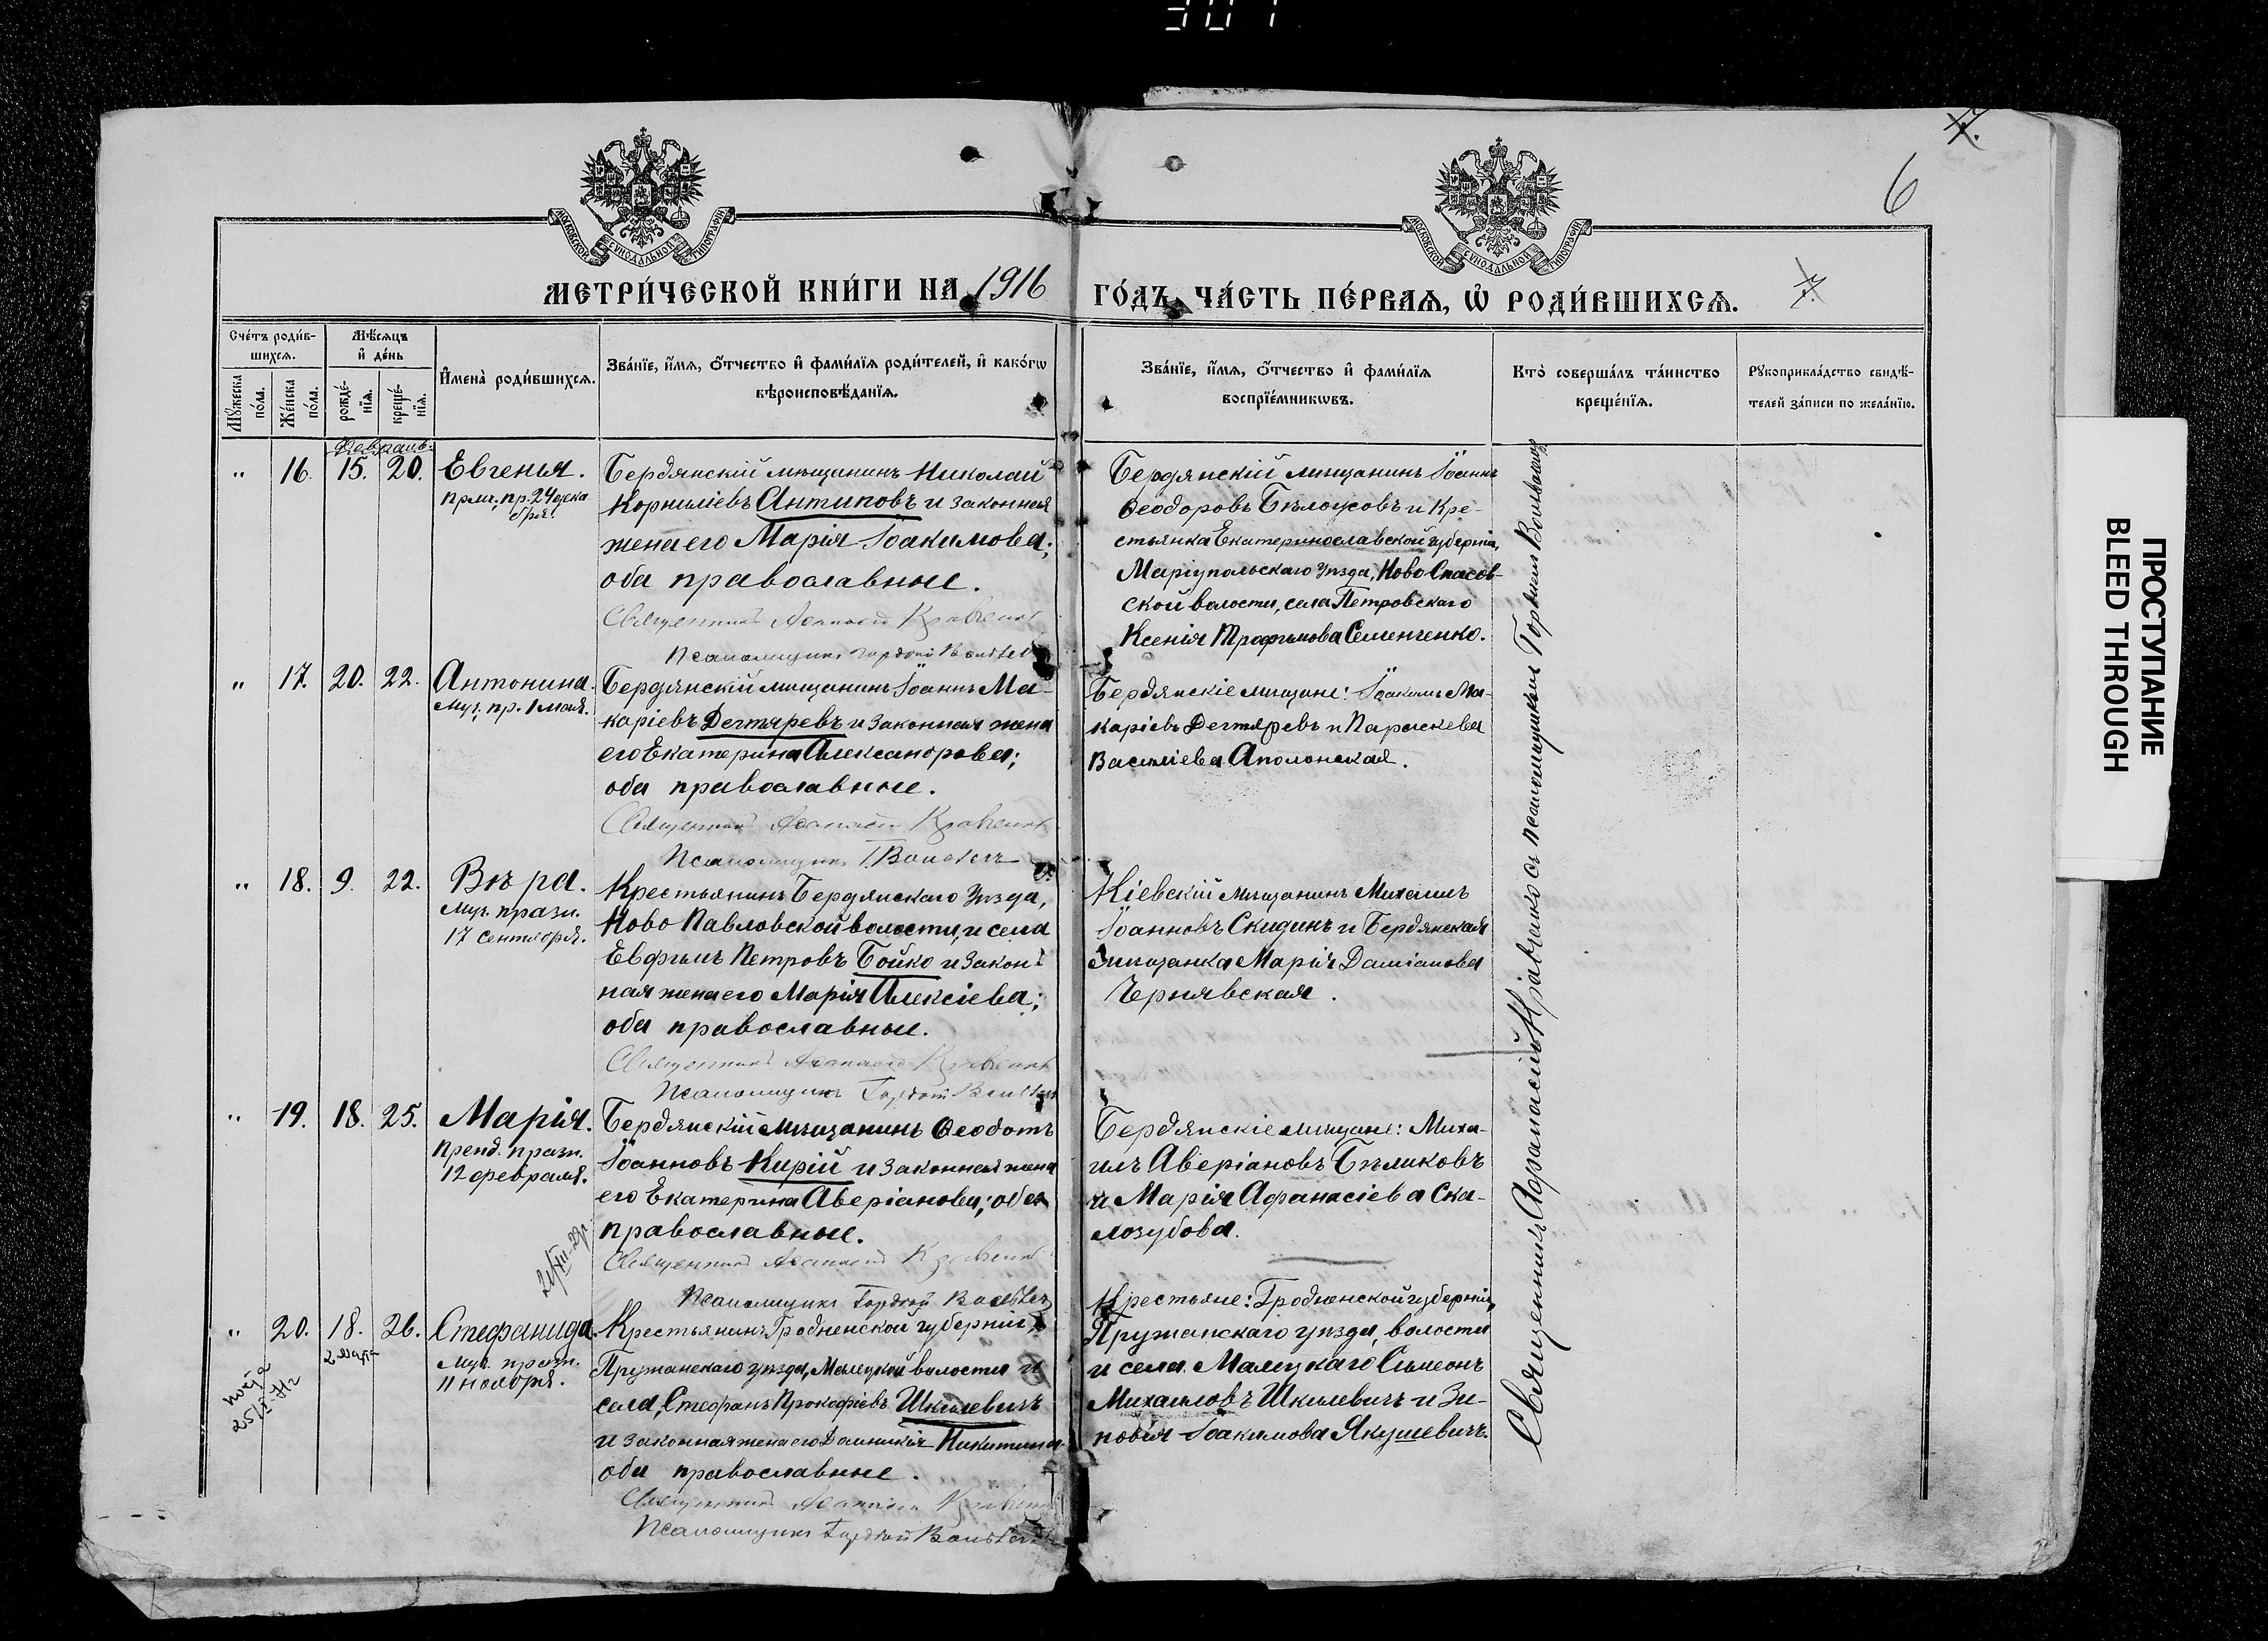 307
7.
6
МОСКОВСКОЙ СУНОДАЛЬНОЙ ТИПОГРАФІИ
МОСКОВСКОЙ СУНОДАЛЬНОЙ ТИПОГРАФІИ
МЕТРИ́ЧЕСКОЙ КНИ́ГИ НА 1916
ГО́ДЪ, ЧА́СТЬ ПЕ́РВАѦ, Ѡ҆ РОДИ́ВШИХСѦ.
7.
Сче́тъ роди́в-
шихсѧ.
Мꙋ́жеска по́ла.
Же́нска по́ла.
Мѣ́сѧцъ
и҆ де́нь
рожде́-
нїѧ.
креще́-
нїѧ.
И҆мена̀ роди́вшихсѧ.
Зва́нїе, и҆́мѧ, о҆́тчество и҆ фами́лїѧ роди́телей, и҆ како́гѡ
вѣроисповѣ́данїѧ.
Зва́нїе, и҆́мѧ, о҆́тчество и҆ фами́лїѧ
воспрїе́мникѡвъ.
Кто̀ соверша́лъ та́инство
креще́нїѧ.
Рꙋкоприкла́дство свидѣ́-
телей за́писи по жела́нїю.
Февраль.
" 16. 15. 20. Евгенья.
прмч., пр. 24 дека
бря.
Бердянскій мѣщанинъ Николай
Корниліевъ Антиповъ и законная
жена его Марія Іоакимова;
оба православные.
Священникъ Аѳанасій Кравченко
Псаломщикъ Гордій
Бердянскій мѣщанинъ Іоаннъ
Ѳеодоровъ Бѣлоусовъ и Кре-
стьянка Екатеринославской губерніи,
Маріупольскаго уѣзда, Ново Спасов-
ской волости, села Петровскаго
Ксенія Трофимова Семенченко.
" 17. 20. 22. Антонина.
Муч. пр. 1 мая.
Бердянскій мѣщанинъ Іоаннъ Ма-
каріевъ Дегтяревъ и законная жена
его Екатерина Александрова;
оба православные.
Священникъ Аѳанасій Кравченко
Псаломщикъ Г.
Бердянскіе мѣщане: Іоакимъ Ма-
каріевъ Дегтяревъ и Параскева
Василіева Аполонская.
" 18. 9. 22. Вѣра.
Муч. празн.
17 сентября.
Крестьянинъ Бердянскаго уѣзда,
Ново Павловской волости, и села
Евфимъ Петровъ Бойко и закон-
ная жена его Марія Алексіева;
оба православные.
Священникъ Аѳанасій Кравченко
Псаломщикъ Гордій
Кіевскій мѣщанинъ Михаилъ
Іоанновъ Скидинъ и Бердянская
мѣщанка Марія Даміанова
Чернявская.
" 19. 18. 25. Марія.
Препд. празн.
12 февраля.
Бердянскій мѣщанинъ Ѳеодотъ
Іоанновъ Кирій и законная жена
его Екатерина Аверіанова; оба
православные.
Священникъ Аѳанасій Кравченко
Псаломщикъ Гордій
Бердянскіе мѣщане: Миха-
илъ Аверіановъ Бѣликовъ
и Марія Афанасіева Ска-
лозубова.
21/XII-29г
" 20. 18. 26. Стефанида.
Муч. празн.
11 ноября.
2 мар
Крестьянинъ Гродненской губерніи,
Пружанскаго уѣзда, Малецкой волости и
села, Стефанъ Прокофіевъ Шкилевичъ
и законная жена его Домникія Никитина
оба православные.
Священникъ Аѳанасій Кравченко
Псаломщикъ Гордій
Крестьяне: Гродненской губерніи,
Пружанскаго уѣзда, волости
и села Малецкаго Симеонъ
Михаиловъ Шкилевичъ и Зи-
новія Іоакимова Якушевичъ.
Священникъ Афанасій Кравченко съ псаломщикомъ Гордіемъ
ПРОСТУПАНИЕ
BLEED THROUGH